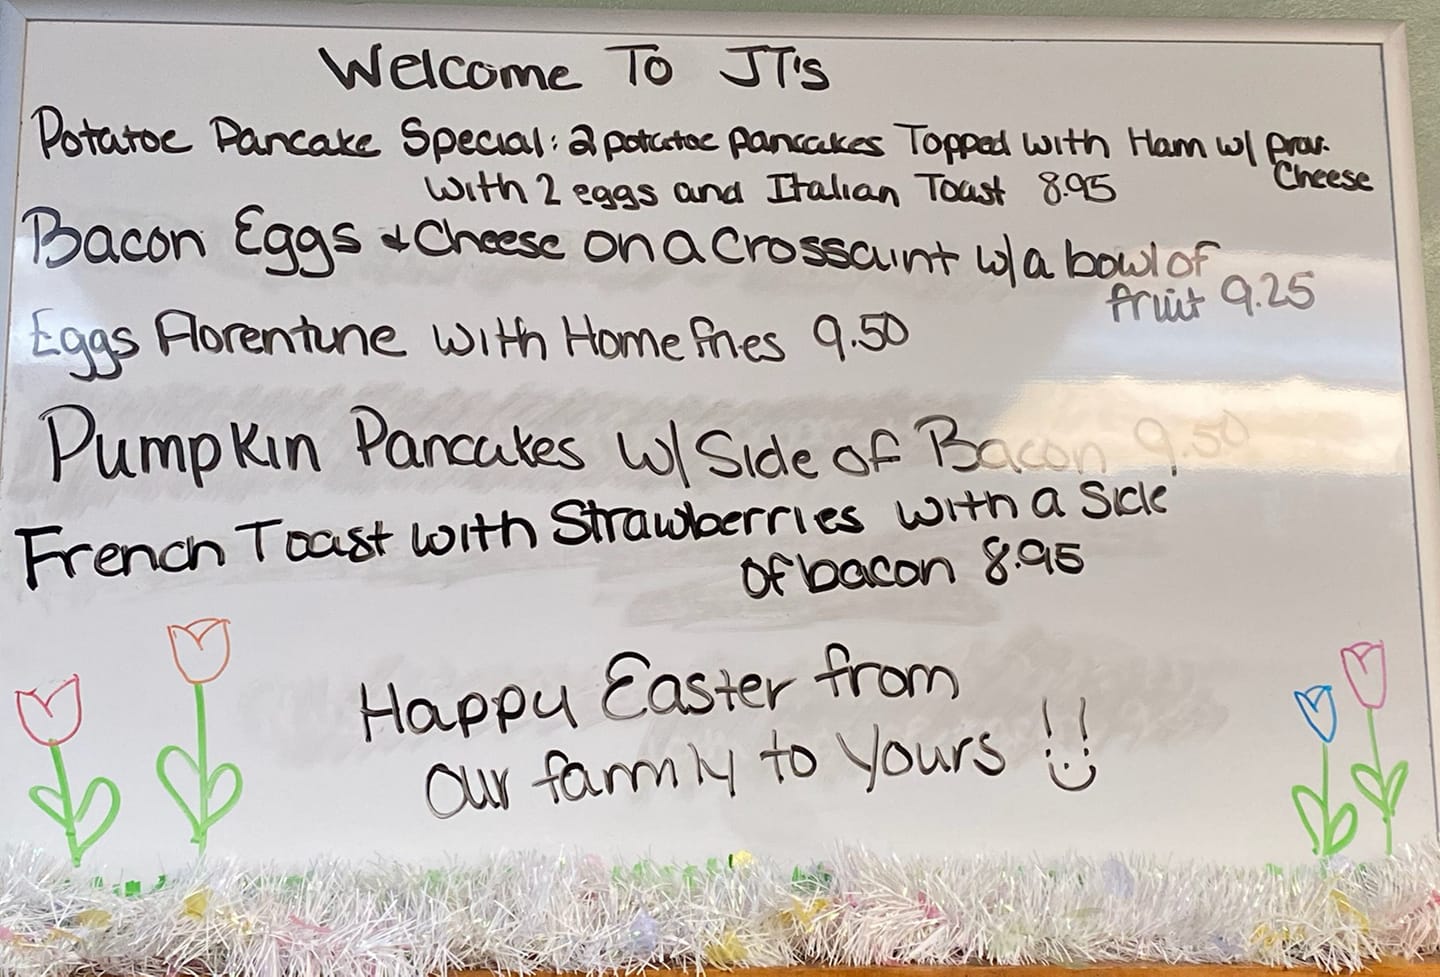 Welcome To JT's
Potatoe Pancake Special: 2 potatoe pancakes Topped with Ham w/ prov.
Cheese
with 2 eggs and Italian Toast 8.95
Bacon Eggs & Cheese on a Crossaint w/ a bowl of
fruit 9.25
Eggs Florentine with Home fries 9.50
Pumpkin Pancakes w/ Side of Bacon 9.50
French Toast with Strawberries with a Side
of bacon 8.95
Happy Easter from
our family to yours !!